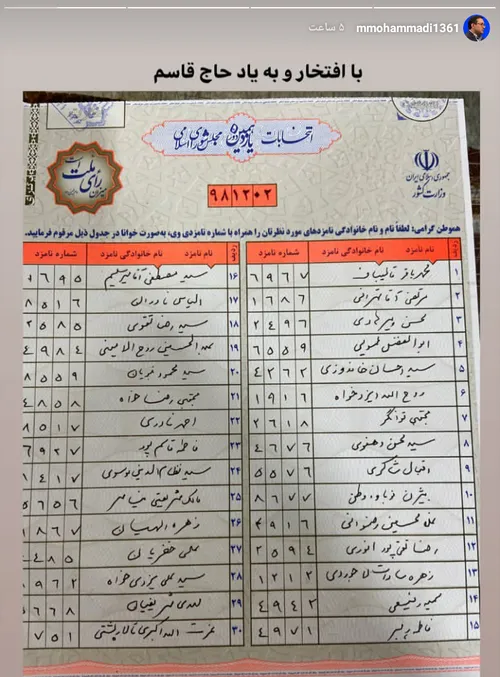 mmohammadi1361 ۵ ساعت
با افتخار و به یاد حاج قاسم
انتخابات یازدهمین دوره مجلس شورای اسلامی
جمهوری اسلامی ایران
وزارت کشور
میزان رأی ملت است
۹۸۱۲۰۲
هموطن گرامی: لطفاً نام و نام خانوادگی نامزدهای مورد نظرتان را همراه با شماره نامزدی وی، به‌صورت خوانا در جدول ذیل مرقوم فرمایید.
ردیف نام نامزد نام خانوادگی نامزد شماره نامزد
۱ محمد باقر قالیباف ۶ ۹ ۶ ۷
۲ مرتضی آقا تهرانی ۱ ۶ ۸ ۶
۳ محسن پیرهادی ۲ ۴ ۹ ۶
۴ ابوالفضل عمویی ۶ ۵ ۵ ۹
۵ سید احسان خاندوزی ۴ ۲ ۶ ۲
۶ روح الله ایزدخواه ۱ ۹ ۱ ۶
۷ مجتبی توانگر ۲ ۶ ۱ ۸
۸ سید محسن دهنوی ۴ ۶ ۷ ۶
۹ اقبال شاکری ۵ ۵ ۷ ۶
۱۰ بیژن نوباوه وطن ۸ ۶ ۷ ۷
۱۱ غلامحسین رضوانی ۴ ۹ ۱ ۶
۱۲ رضا تقی پور انوری ۲ ۵ ۹ ۴
۱۳ زهره سادات لاجوردی ۱ ۲ ۱ ۲
۱۴ سمیه رفیعی ۴ ۹ ۴ ۲
۱۵ فاطمه ۴ ۹ ۷ ۱
ردیف نام نامزد نام خانوادگی نامزد شماره نامزد
۱۶ سید مصطفی آقامیرسلیم ۶ ۹ ۵
۱۷ الیاس نادران ۸ ۵ ۱ ۶
۱۸ سید رضا تقوی ۲ ۵ ۸ ۵
۱۹ عبدالحسین روح الامینی ۴ ۹ ۸ ۴
۲۰ سید محمود نبویان ۸ ۵ ۵ ۹
۲۱ مجتبی رضاخواه ۴ ۸ ۵ ۸
۲۲ احمد نادری ۸ ۵ ۱ ۷
۲۳ فاطمه قاسم پور ۶ ۹ ۲ ۷
۲۴ سید نظام الدین موسوی ۴ ۱ ۷
۲۵ مالک شریعتی نیاسر ۵ ۶ ۵ ۶
۲۶ زهره الهیان ۱ ۸ ۶ ۷
۲۷ علی خضریان ۴ ۸ ۵
۲۸ سید علی یزدی خواه ۹ ۶ ۲
۲۹ مهدی شریفیان ۶ ۶ ۸
۳۰ عزت الله اکبری تالارپشتی ۷ ۵ ۱